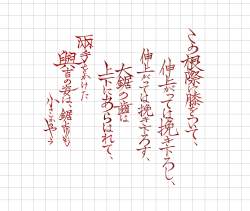 この根際に膝をついて、
伸上がっては挽き下ろし、
伸上がっては挽き下ろす、
大鋸の歯は
上下にあらはれて、
兩手をかけた
與吉の姿は、鋸よりも
小さかやう